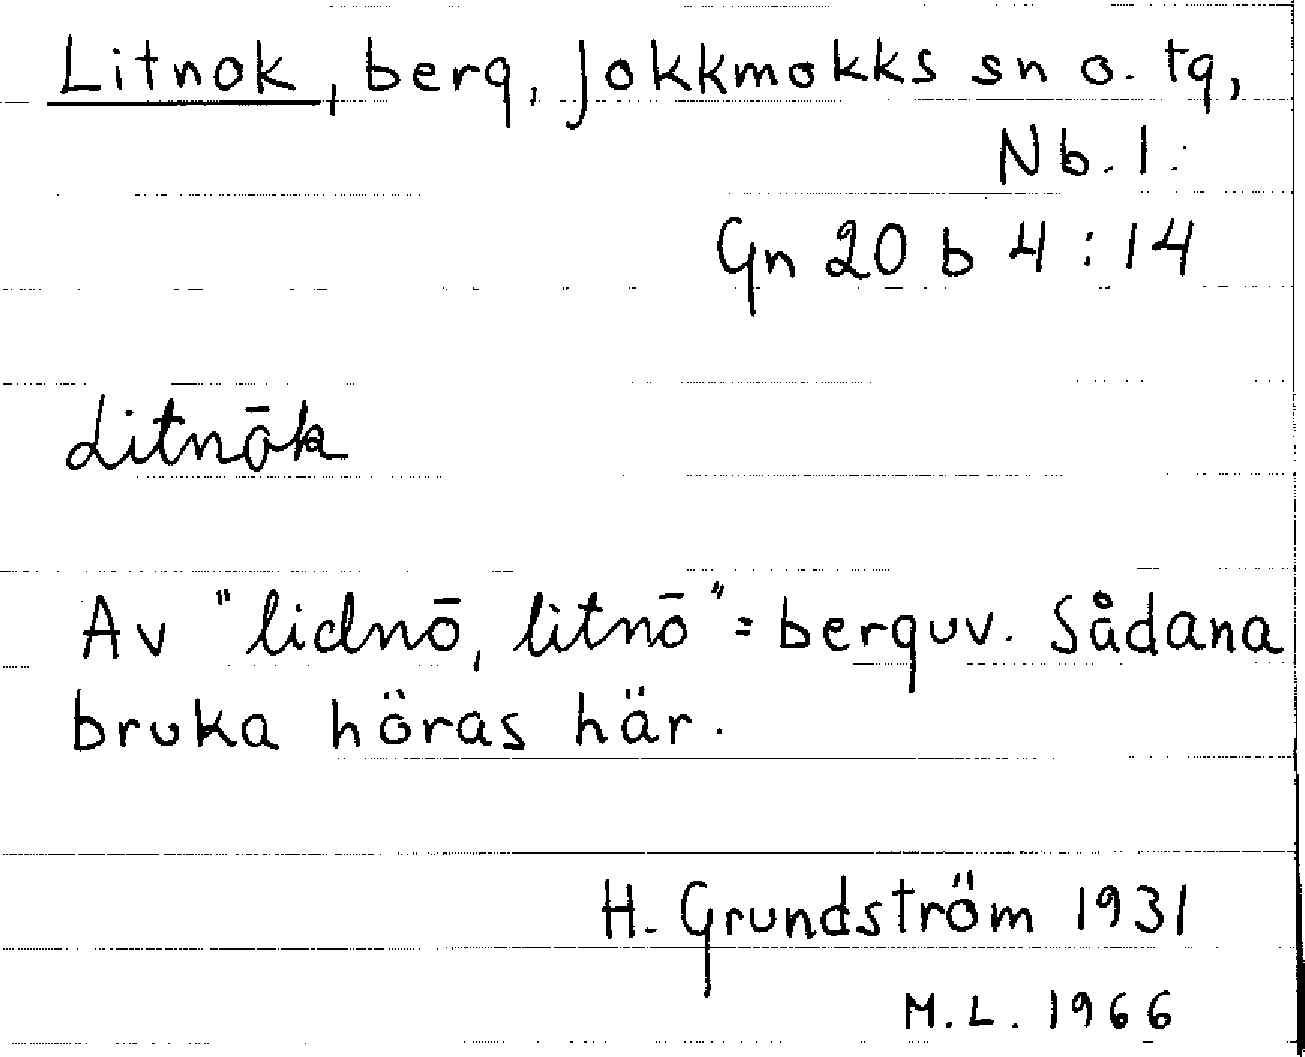 Litnok, berg, Jokkmokks sn o. tg,
Nb. l.
Gn 20 b 4 : 14
Litnōk
Av "lidnō, litnō" = berguv. Sådana
bruka höras här.
H. Grundström 1931
M.L. 1966